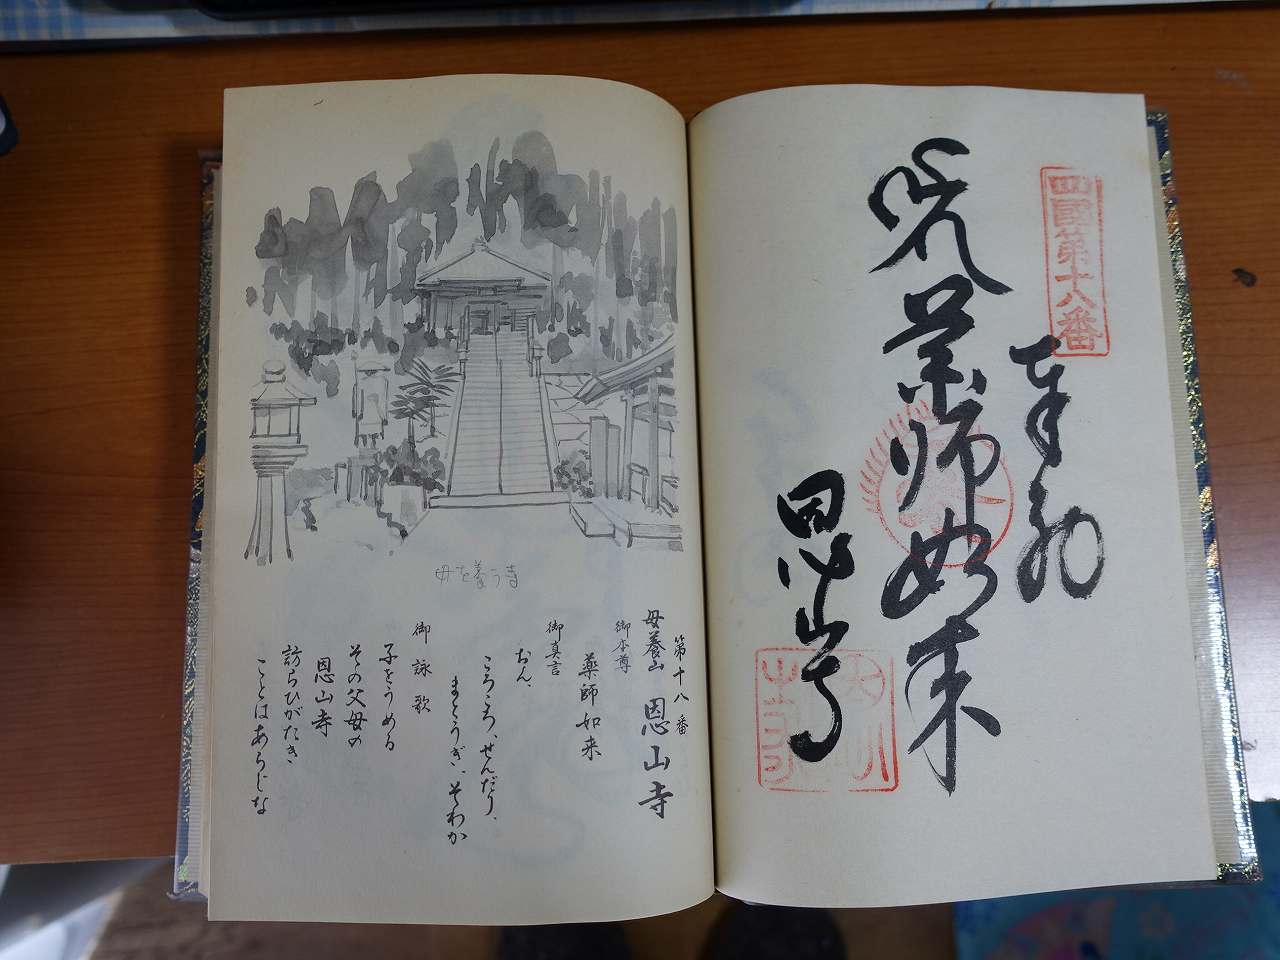 四國第十八番
奉納
薬師如来
恩山寺
母を養う寺
第十八番
母養山 恩山寺
御本尊
薬師如来
御真言
おん、
ころころ、せんだり、
まとうぎ、そわか
御詠歌
子をうめる
その父母の
恩山寺
訪らひがたき
ことはあらじな